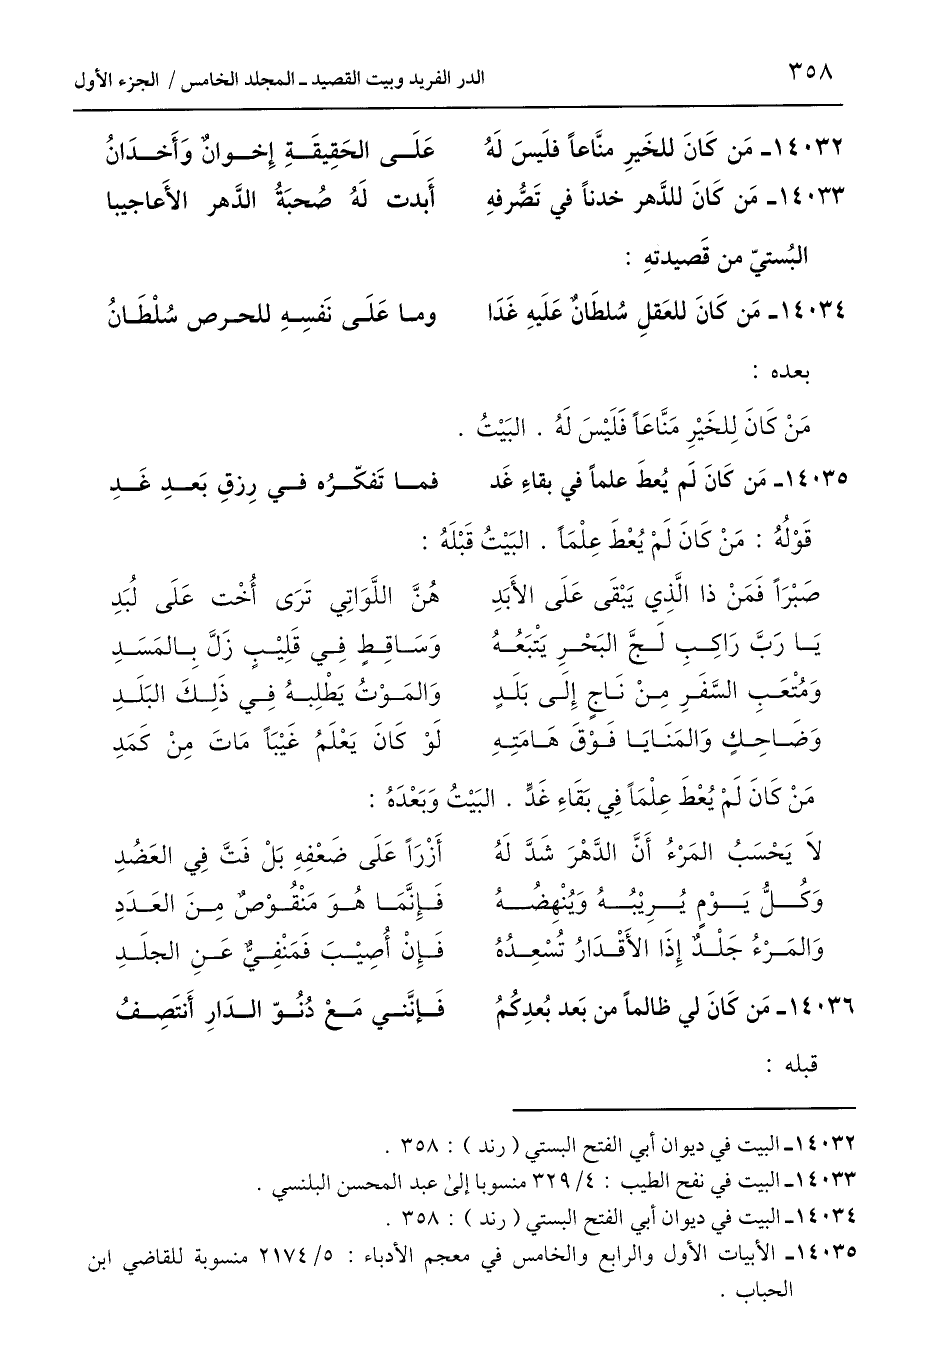 ٣٥٨ الدر الفريد وبيت القصيد ـ المجلد الخامس / الجزء الأول
١٤٠٣٢ـ مَن كَانَ للخَيرِ منَّاعاً فلَيسَ لَهُ عَلَى الحَقِيقَةِ إخوانٌ وَأَخدَانُ
١٤٠٣٣ـ مَن كَانَ للدَّهر خدناً في تَصُّرفهِ أَبدت لَهُ صُحبَةُ الدَّهر الأَعاجيبا
البُستيّ من قَصِيدتهِ :
١٤٠٣٤ـ مَن كَانَ للعَقلِ سُلطَانٌ عَلَيهِ غَدَا وما عَلَى نَفسِهِ للحرص سُلْطَانُ
بعده :
مَنْ كَانَ لِلخَيْرِ مَنَّاعَاً فَلَيْسَ لَهُ . البَيْتُ .
١٤٠٣٥ـ مَن كَانَ لَم يُعطَ علماً في بقاءِ غَد فما تَفكّرُه في رِزقِ بَعدِ غَدِ
قَوْلُهُ : مَنْ كَانَ لَمْ يُعْطَ عِلْمَاً . البَيْتُ قَبْلَهُ :
صَبْرَاً فَمَنْ ذا الَّذِي يَبْقَى عَلَى الأَبَدِ هُنَّ اللَّوَاتِي تَرَى أُخْت عَلَى لُبَدِ
يَا رَبَّ رَاكِبِ لَجَّ البَحْرِ يَتْبَعُهُ وَسَاقِطٍ فِي قَلِيْبٍ زَلَّ بِالمَسَدِ
وَمُتْعَبِ السَّفَرِ مِنْ نَاجٍ إِلَى بَلَدٍ وَالمَوْتُ يَطْلِبهُ فِي ذَلِكَ البَلَدِ
وَضَاحِكٍ وَالمَنَايَا فَوْقَ هَامَتِهِ لَوْ كَانَ يَعْلَمُ غَيْبَاً مَاتَ مِنْ كَمَدِ
مَنْ كَانَ لَمْ يُعْطَ عِلْمَاً فِي بَقَاءِ غَدٍّ . البَيْتُ وَبَعْدَهُ :
لاَ يَحْسَبُ المَرْءُ أَنَّ الدَّهْرَ شَدَّ لَهُ أَزْرَاً عَلَى ضَعْفِهِ بَلْ فَتَّ فِي العَضُدِ
وَكُلُّ يَوْمٍ يُرِيْبُهُ وَيُنْهِضُهُ فَإِنَّمَا هُوَ مَنْقُوْصٌ مِنَ العَدَدِ
وَالمَرْءُ جَلْدٌ إِذَا الأَقْدَارُ تُسْعِدُهُ فَإِنْ أُصِيْبَ فَمَنْفِيٌّ عَنِ الجلَدِ
١٤٠٣٦ـ مَن كَانَ لي ظالماً من بَعد بُعدِكُمُ فَإِنَّني مَعْ دُنُوّ الدَارِ أَنتَصِفُ
قبله :
١٤٠٣٢ـ البيت في ديوان أبي الفتح البستي ( رند ) : ٣٥٨ .
١٤٠٣٣ـ البيت في نفح الطيب : ٤/ ٣٢٩ منسوبا إلىٰ عبد المحسن البلنسي .
١٤٠٣٤ـ البيت في ديوان أبي الفتح البستي ( رند ) : ٣٥٨ .
١٤٠٣٥ـ الأبيات الأول والرابع والخامس في معجم الأدباء : ٥/ ٢١٧٤ منسوبة للقاضي ابن
الحباب .